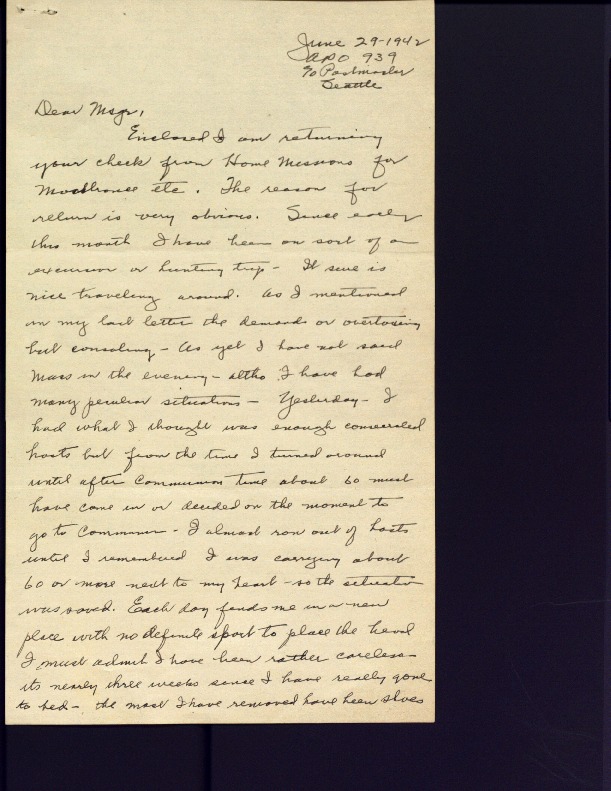 June 29-1942
APO 939
c/o Postmaster
Seattle
Dear Msgr,
Enclosed I am returning
your check from Home Missions for
etc. The reason for
return is very obvious. Since early
this month I have been on sort of an
excursion or hunting trip - It sure is
nice traveling around. As I mentioned
in my last letter the demands or overtaxing
but consoling - As yet I have not said
Mass in the evening - altho I have had
many peculiar situations - Yesterday - I
had what I thought was enough consecrated
hosts but from the time I turned around
until after Communion time about 60 must
have come in or decided on the moment to
go to Communion - I almost ran out of hosts
until I remembered I was carrying about
60 or more next to my heart - so the situation
was saved. Each day finds me in a new
place with no definite spot to place the head
I must admit I have been rather careless -
its nearly three weeks since I have really gone
to bed - the most I have removed have been shoes